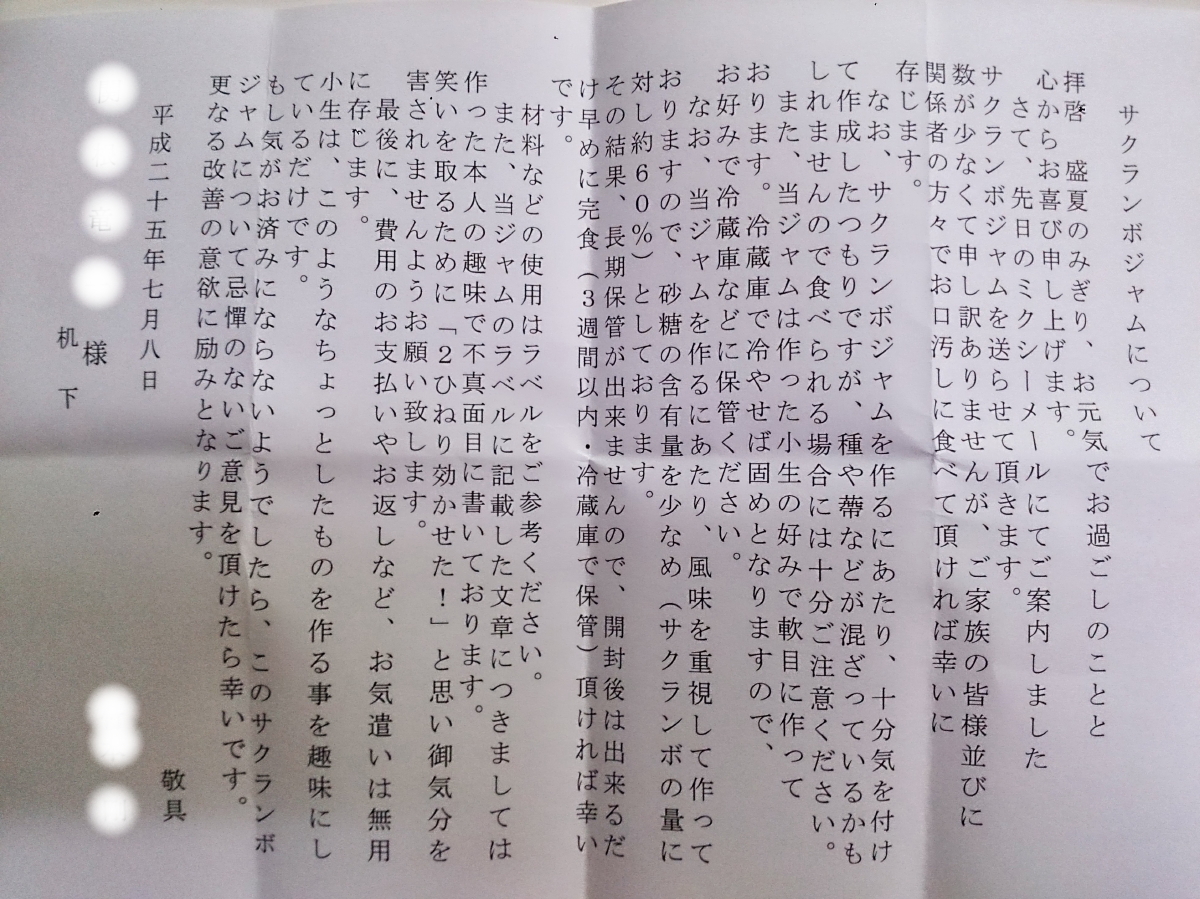 サクランボジャムについて
拝啓　盛夏のみぎり、お元気でお過ごしのことと
心からお喜び申し上げます。
さて、先日のミクシーメールにてご案内しました
サクランボジャムを送らせて頂きます。
数が少なくて申し訳ありませんが、ご家族の皆様並びに
関係者の方々でお口汚しに食べて頂ければ幸いに
存じます。
なお、サクランボジャムを作るにあたり、十分気を付け
て作成したつもりですが、種や蔕などが混ざっているかも
しれませんので食べられる場合には十分ご注意ください。
また、当ジャムは作った小生の好みで軟目に作って
おります。冷蔵庫で冷やせば固めとなりますので、
お好みで冷蔵庫などに保管ください。
なお、当ジャムを作るにあたり、風味を重視して作って
おりますので、砂糖の含有量を少なめ（サクランボの量に
対し約６０％）としております。
その結果、長期保管が出来ませんので、開封後は出来るだ
け早めに完食（３週間以内・冷蔵庫で保管）頂ければ幸い
です。
材料などの使用はラベルをご参考ください。
また、当ジャムのラベルに記載した文章につきましては
作った本人の趣味で不真面目に書いております。
笑いを取るために「２ひねり効かせた！」と思い御気分を
害されませんようお願い致します。
最後に、費用のお支払いやお返しなど、お気遣いは無用
に存じます。
小生は、このようなちょっとしたものを作る事を趣味にし
ているだけです。
もし気がお済みにならないようでしたら、このサクランボ
ジャムについて忌憚のないご意見を頂けたら幸いです。
更なる改善の意欲に励みとなります。
敬具
平成二十五年七月八日
様
机下